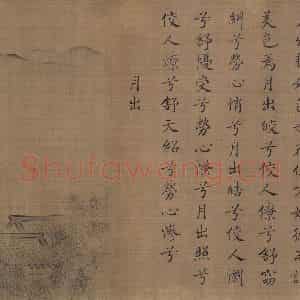 美色焉月出皎兮佼人僚兮舒窈
糾兮勞心悄兮月出皓兮佼人
兮舒懮受兮勞心慅兮月出照兮
佼人燎兮舒夭紹兮勞心慘兮
月出
Shufawang.cn